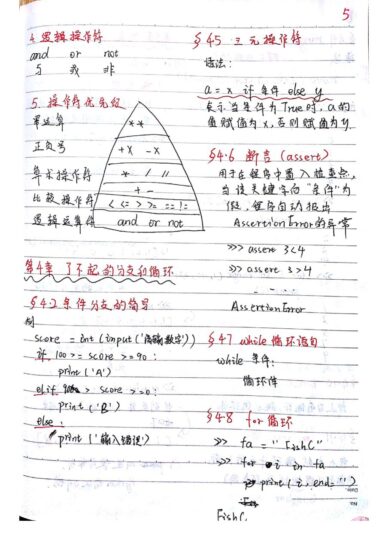 5
4. 逻辑操作符
and or not
与 或 非
5. 操作符优先级
幂运算 **
正负号 +x -x
算术操作符 * / //
+ -
比较操作符 < <= > >= == !=
逻辑运算符 and or not
第4章 了不起的分支和循环
§4.2 条件分支的简写
例
score = int (input('请输数字'))
if 100 >= score >= 90 :
print ('A')
elif 90 > score >= 0 :
print ('B')
else :
print ('输入错误')
§4.5 三元操作符
语法:
a = x if 条件 else y
表示当条件为True时, a的
值赋值为x, 否则赋值为y.
§4.6 断言 (assert)
用于在程序中置入检查点,
当该关键字向"条件"为
假, 程序自动抛出
AscertionError的异常
>>> assert 3<4
>>> assert 3>4
AssertionError
§4.7 while循环语句
while 条件:
循环体
§4.8 for循环
>> fa = "FishC"
>> for i in fa
print (i, end='')
FishC